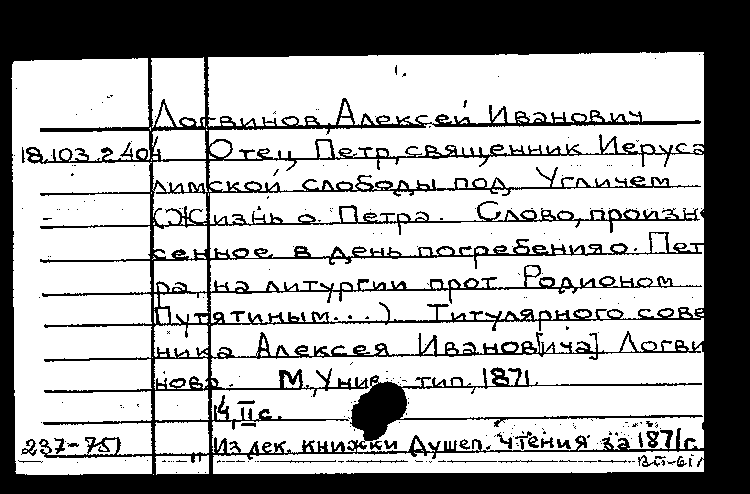 1.
Логвинов, Алексей Иванович
18.103.2.404 Отец Петр, священник Иеруса
лимской слободы под Угличем
(Жизнь о. Петра. Слово, произне
сенное в день погребения о. Пет
ра, на литургии прот. Родионом
Путятиным...) Титулярного сове
ника Алексея Иванов[ича] Логви
нова. М., Унив. тип., 1871.
14, II с.
237-751 „ Из дек. книжки Душеп. чтения за 1871 г.